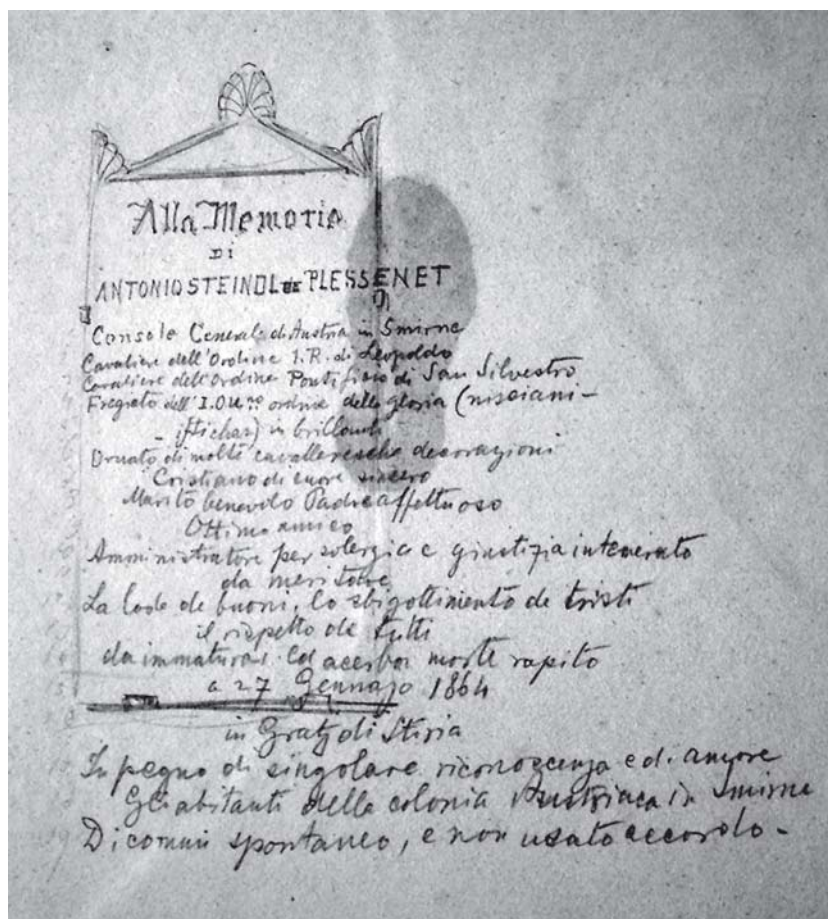 Alla Memoria
DI
ANTONIO STEINDL DE PLESSENET
Console Generale di Austria in Smirne
Cavaliere dell'Ordine I. R. di Leopoldo
Cavaliere dell'ordine Pontificio di San Silvestro
Fregiato dell' I. ordine della gloria (nisciani-
- iftichar) in brillanti
Ornato di molte cavalleresche decorazioni
Cristiano di cuore sincero
Marito benevolo Padre affettuoso
Ottimo amico
Amministratore per solerzia e giustizia intemerato
da meritare
La lode de buoni, lo sbigottimento de tristi
il rispetto de tutti
da immatura ed acerba morte rapito
a 27 Gennajo 1864
in Gratz di Stiria
In pegno di singolare riconoscenza e di amore
Gli abitanti della colonia Austriaca in Smirne
Di comun spontaneo, e non usato accordo -